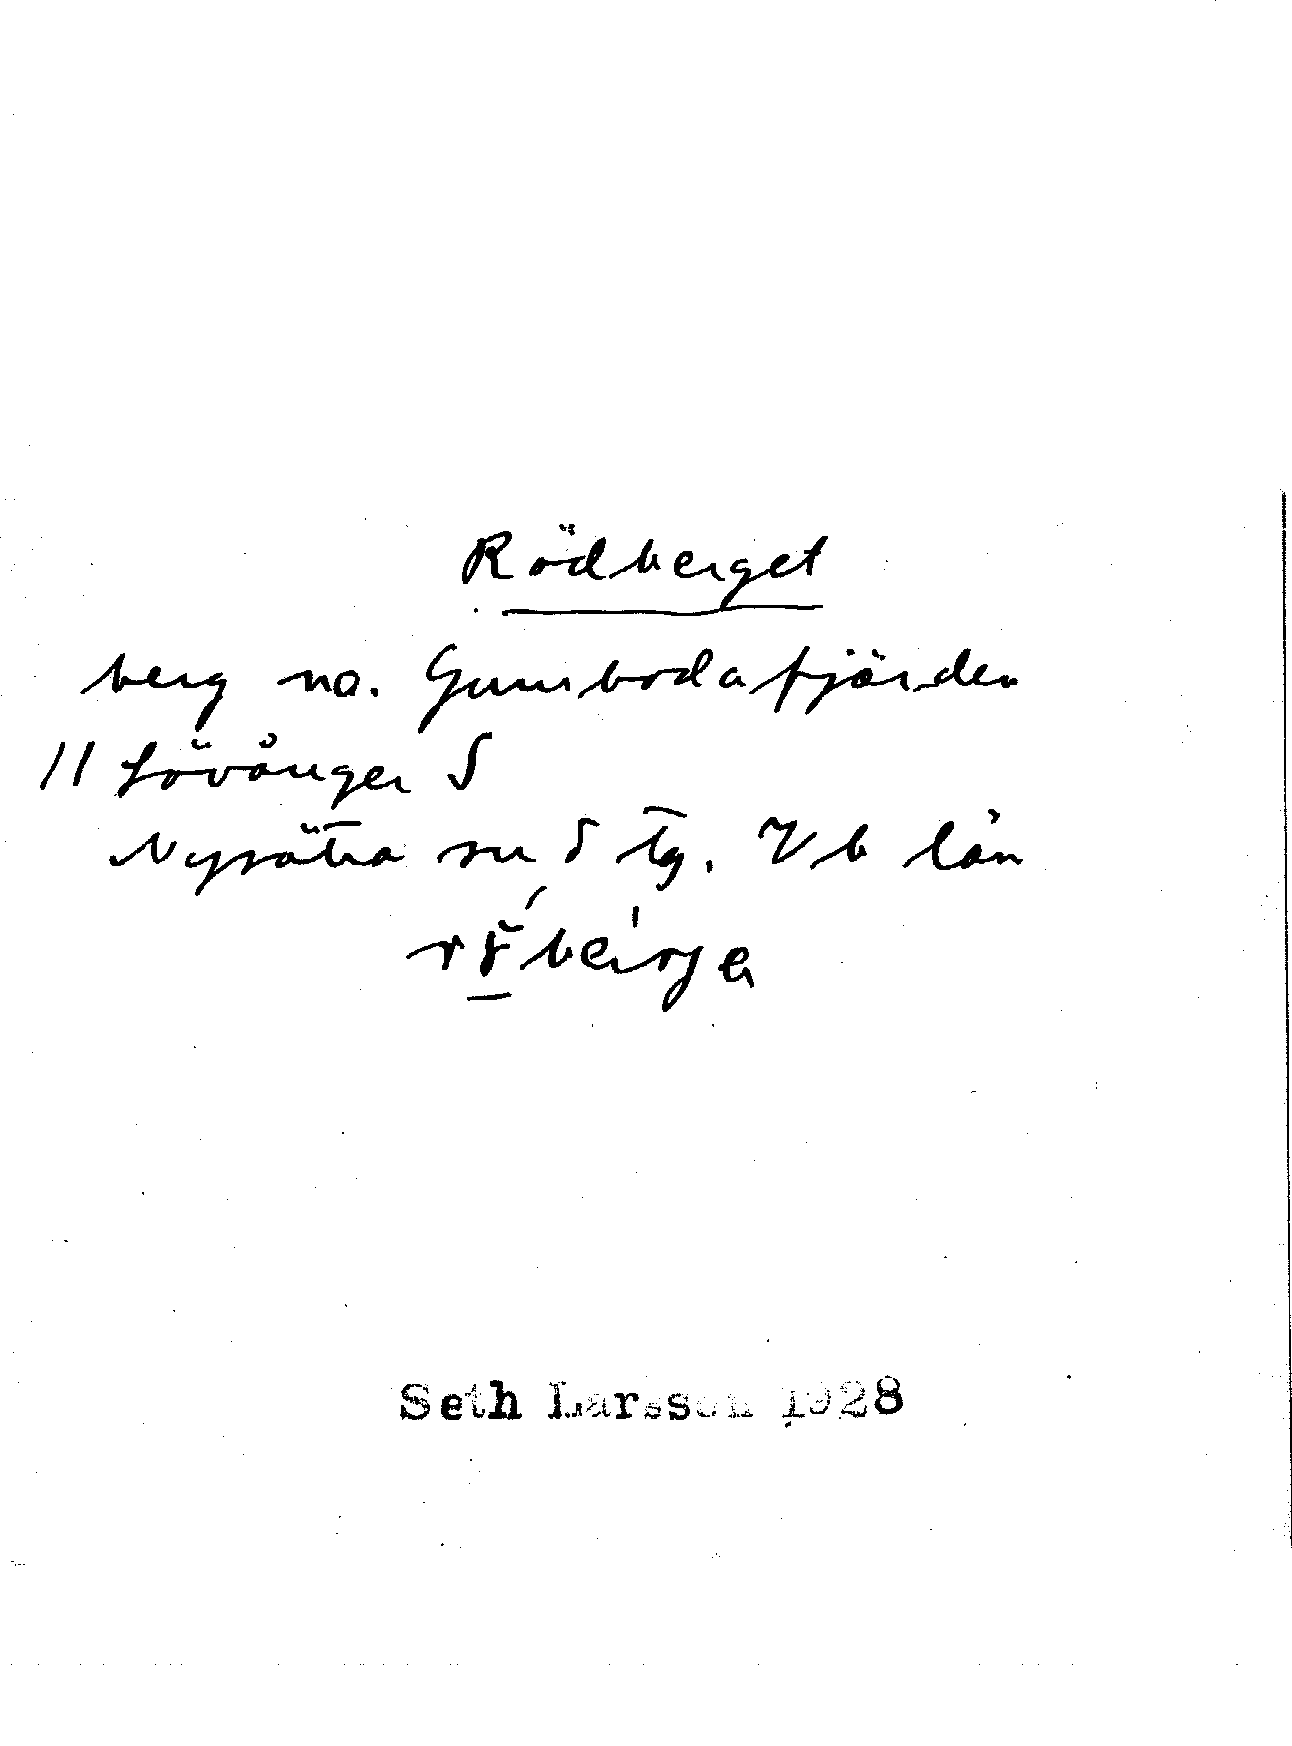 Rödberget
berg no. Gumbodafjärden
11 Lövånger S
Nysätra sn S tg. Vb län
Seth Larsson 1928